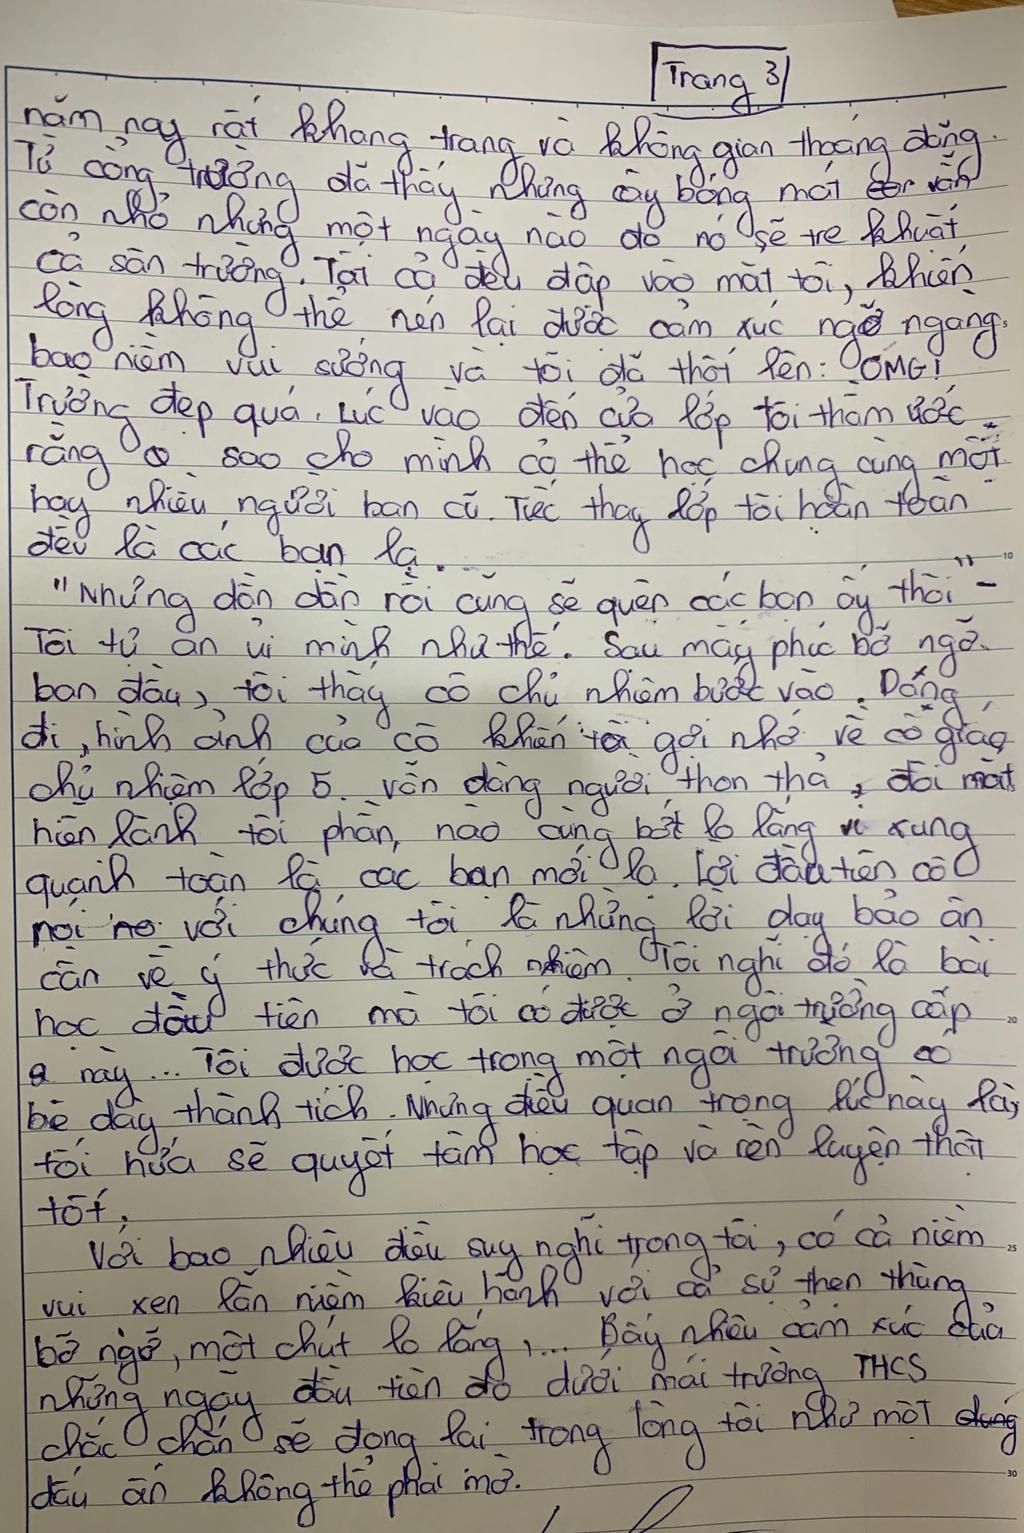 Trang 3
năm nay rất khang trang và không gian thoáng đãng.
Từ cổng trường đã thấy những cây bóng mát vẫn
còn nhỏ nhưng một ngày nào đó nó sẽ tre khuất
cả sân trường. Tất cả đều đập vào mắt tôi, khiến
lòng không thể nén lại được cảm xúc ngỡ ngàng,
bao niềm vui sướng và tôi đã thốt lên: OMG!
Trường đẹp quá. Lúc vào đến cửa lớp tôi thầm ước
rằng sao cho mình có thể học chung cùng một
hay nhiều người bạn cũ. Tiếc thay lớp tôi hoàn toàn
đều là các bạn lạ...
"Nhưng dần dần rồi cũng sẽ quên các bạn ấy thôi" -
Tôi tự an ủi mình như thế. Sau mấy phúc bỡ ngỡ
ban đầu, tôi thấy cô chủ nhiệm bước vào. Dáng
đi, hình ảnh của cô khiến tôi gợi nhớ về cô giáo
chủ nhiệm lớp 5. vẫn dáng người thon thả, đôi mắt
hiền lành tôi phần nào cũng bớt lo lắng vì xung
quanh toàn là các bạn mới lạ. Lời đầu tiên cô
nói với chúng tôi là những lời dạy bảo ân
cần về ý thức và trách nhiệm. Tôi nghĩ đó là bài
học đầu tiên mà tôi có được ở ngôi trường cấp
2 này... Tôi được học trong một ngôi trường có
bề dày thành tích. Nhưng điều quan trọng lúc này là,
tôi hứa sẽ quyết tâm học tập và rèn luyện thật
tốt.
Với bao nhiêu điều suy nghĩ trong tôi, có cả niềm
vui xen lẫn niềm kiêu hãnh với cả sự thẹn thùng
bỡ ngỡ, một chút lo lắng,... Bấy nhiêu cảm xúc của
những ngày đầu tiên đó dưới mái trường THCS
chắc chắn sẽ đọng lại trong lòng tôi như một
dấu ấn không thể phai mờ.